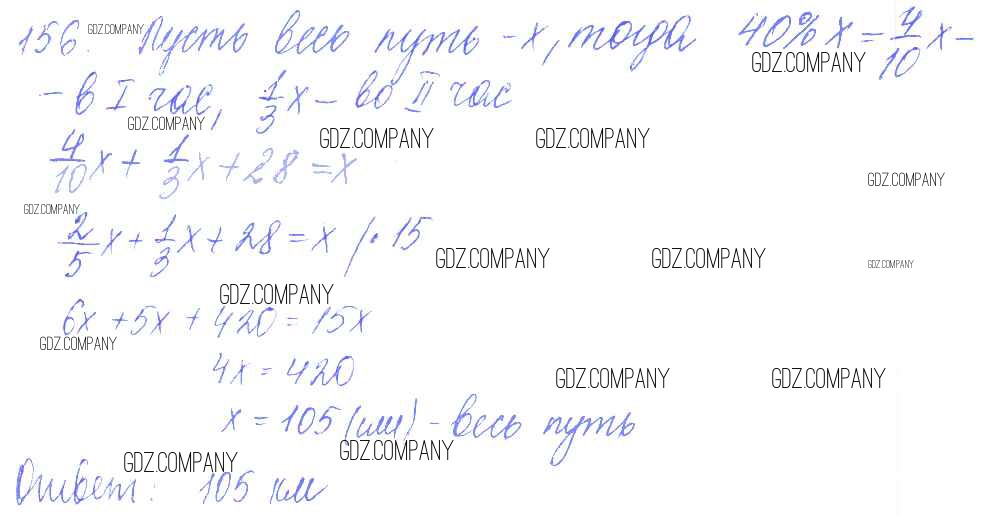 156. GDZ.COMPANY Пусть весь путь - x, тогда 40% x = 4/10 x -
GDZ.COMPANY
- в I час, 1/3 x - во II час
GDZ.COMPANY
GDZ.COMPANY GDZ.COMPANY
4/10 x + 1/3 x + 28 = x
GDZ.COMPANY
GDZ.COMPANY
2/5 x + 1/3 x + 28 = x | · 15
GDZ.COMPANY GDZ.COMPANY GDZ.COMPANY
GDZ.COMPANY
6x + 5x + 420 = 15x
GDZ.COMPANY
4x = 420
GDZ.COMPANY GDZ.COMPANY
x = 105 (км) - весь путь
GDZ.COMPANY GDZ.COMPANY
Ответ: 105 км